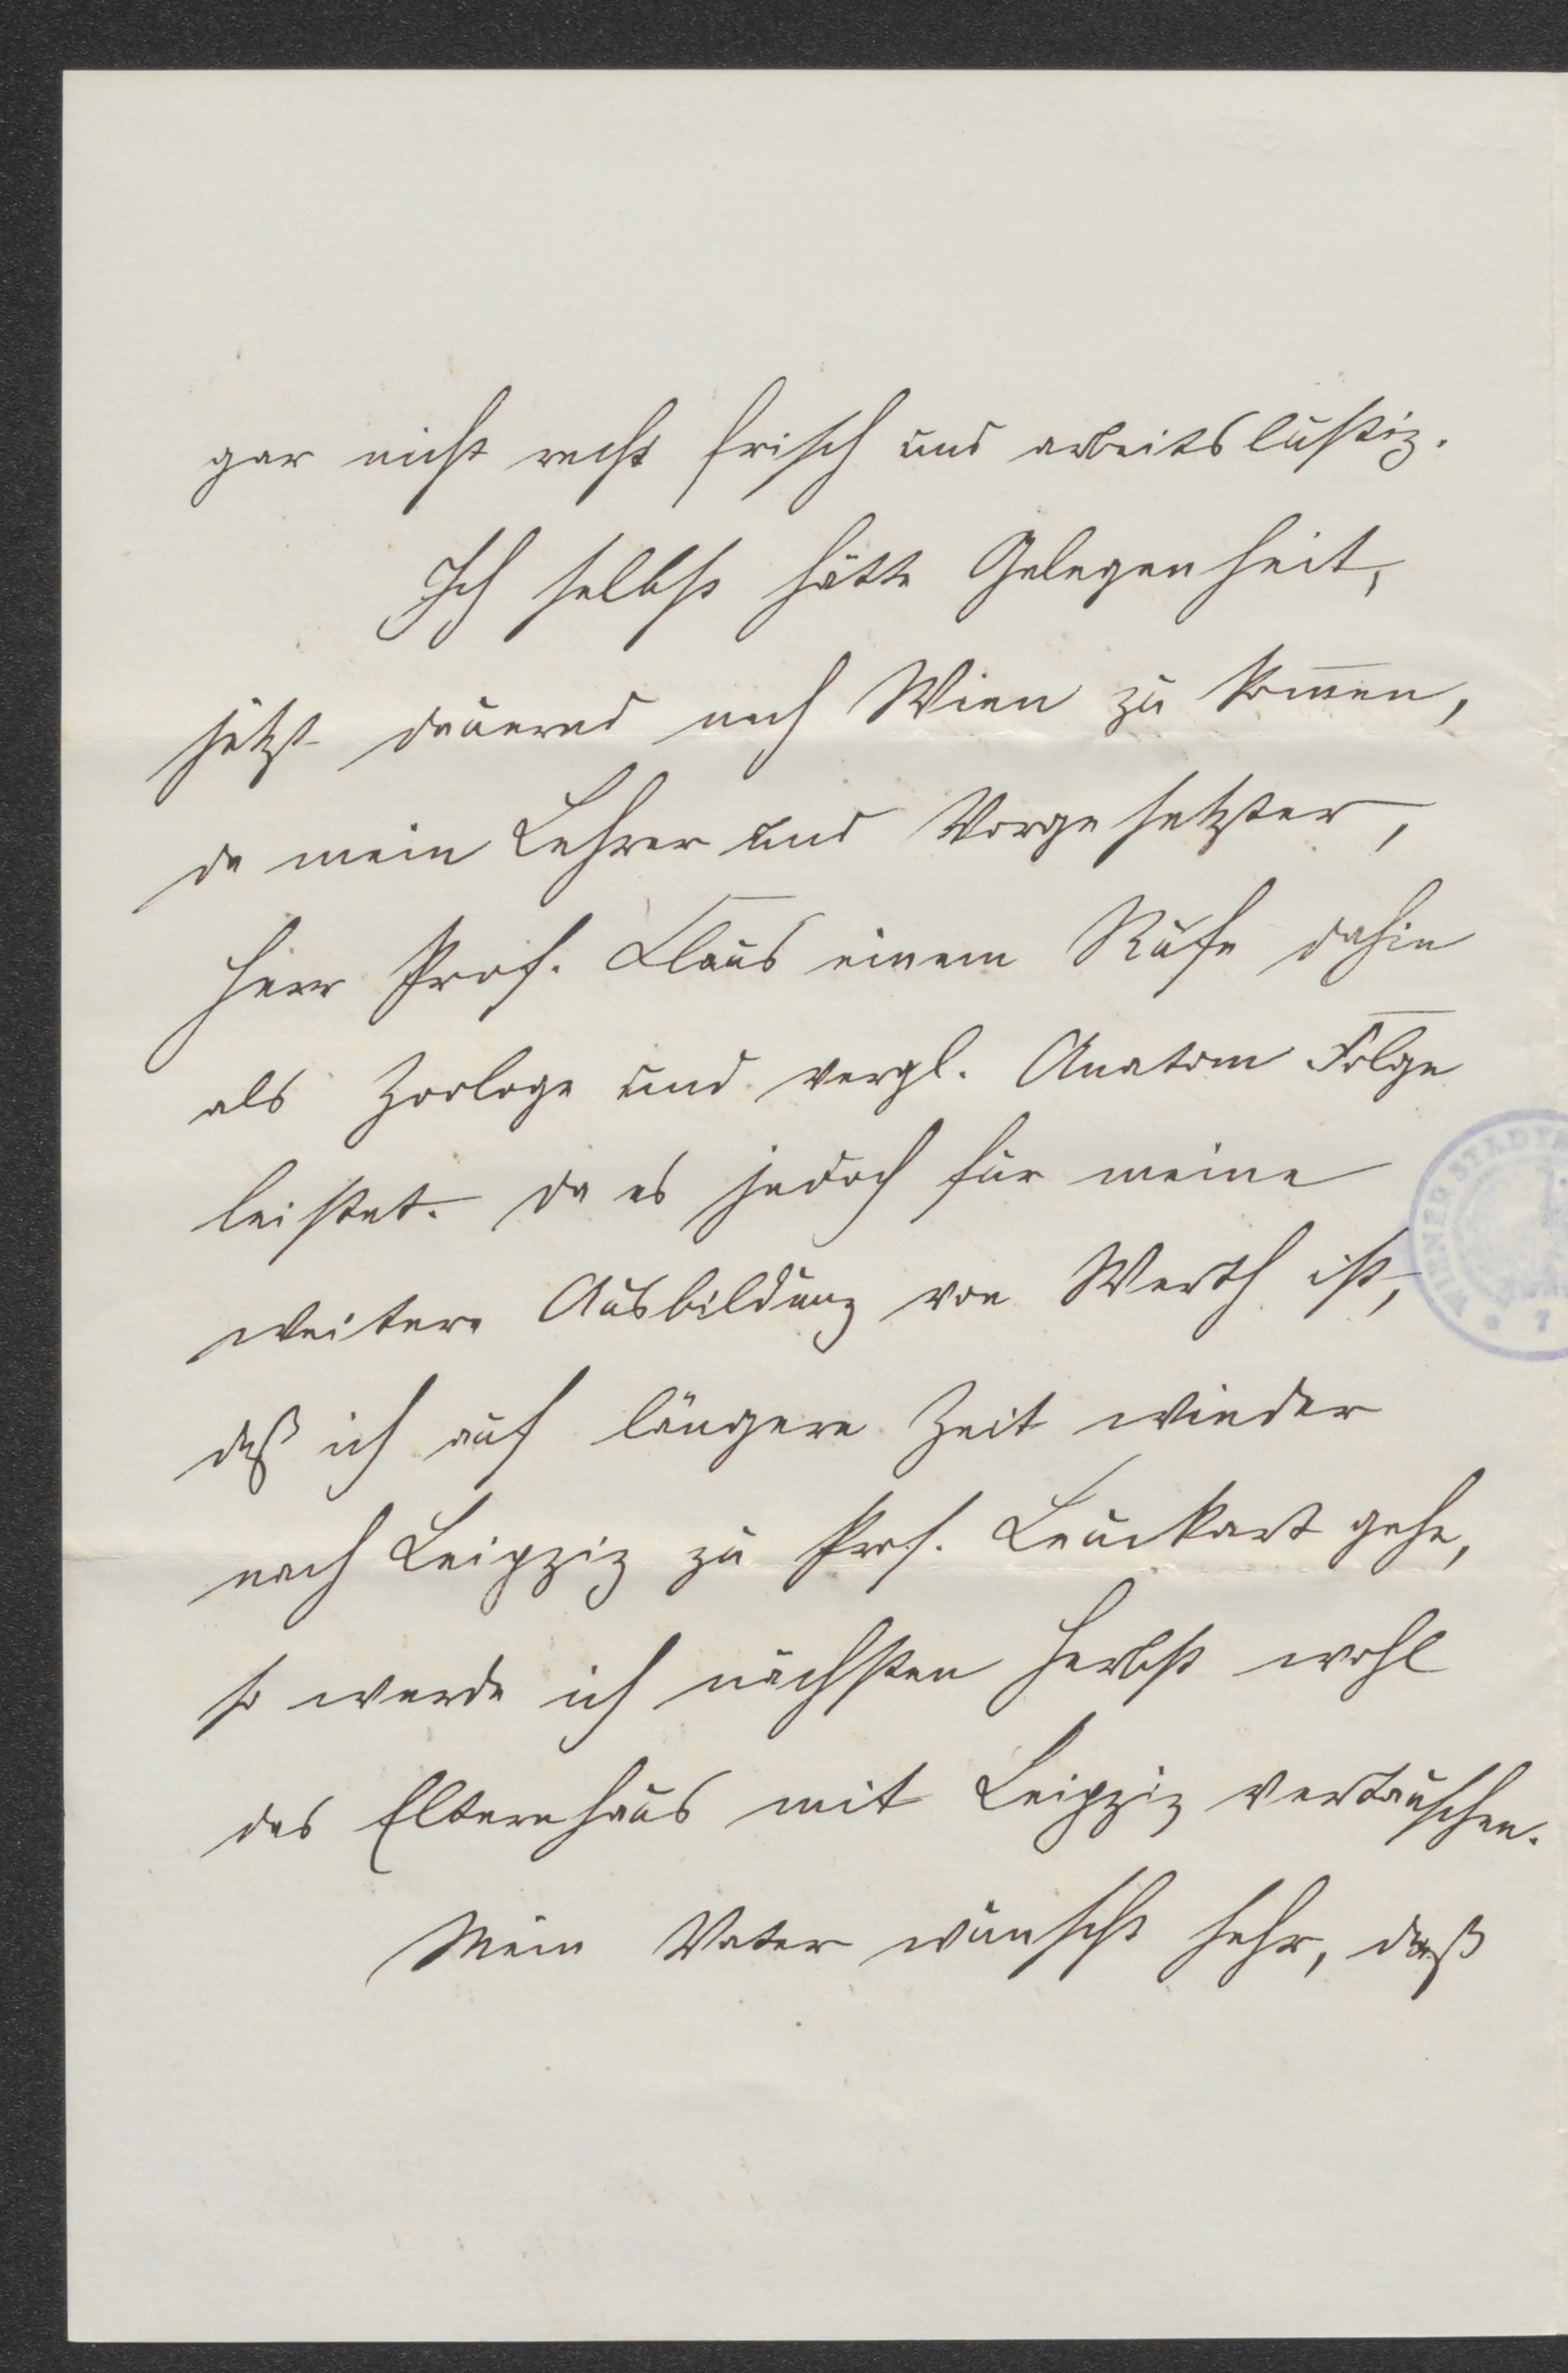 gar nicht recht frisch und arbeitslustig.
Ich selbst hätte Gelegenheit,
jetzt dauernd nach Wien zu kom̅en,
da mein Lehrer und Vorgesetzter,
Herr Prof. Claus einem Rufe dahin
als Zoologe und vergl. Anatom Folge
leistet. Da es jedoch für meine
weitere Ausbildung von Werth ist,
daß ich auf längere Zeit wieder
nach Leipzig zu Prof. Leuckart gehe,
so werde ich nächsten Herbst wohl
das Elternhaus mit Leipzig vertauschen.
Mein Vater wünscht sehr, daß
WIENER STADT